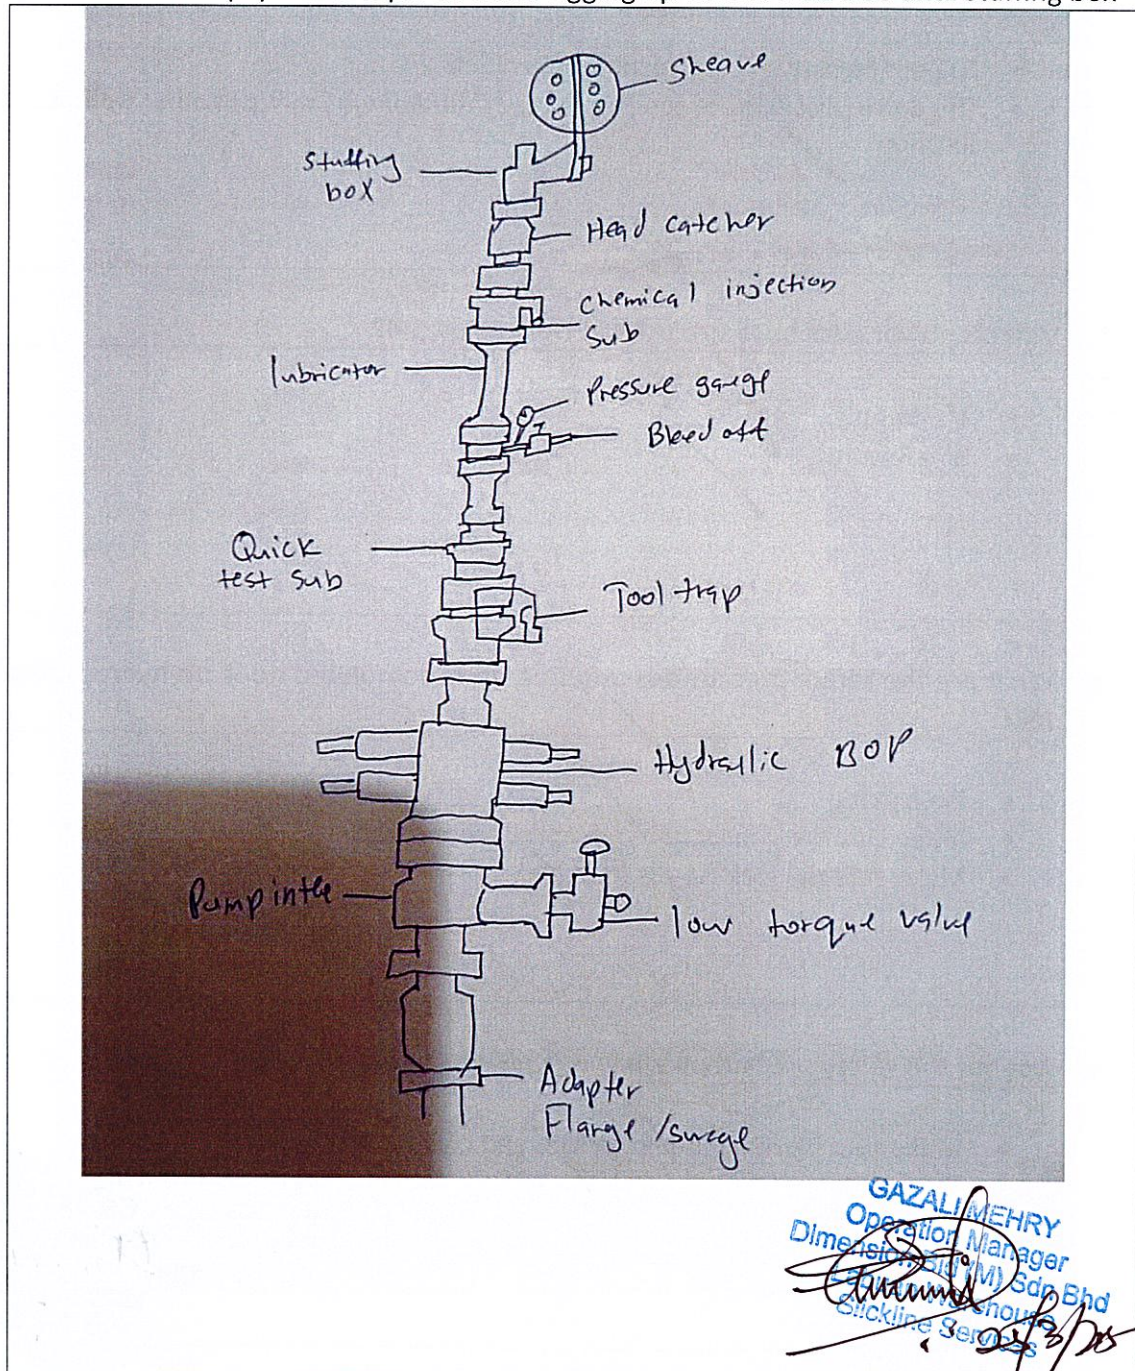 Sheave
Stuffing
box
Head catcher
Chemical injection
Sub
lubricator
Pressure gauge
Bleed off
Quick
test sub
Tool trap
Hydraulic BOP
Pump in tee
low torque valve
Adapter
Flange /swege
GAZALI MEHRY
Operation Manager
Dimension Bid (M) Sdn Bhd
Labuan Warehouse
Slickline Services